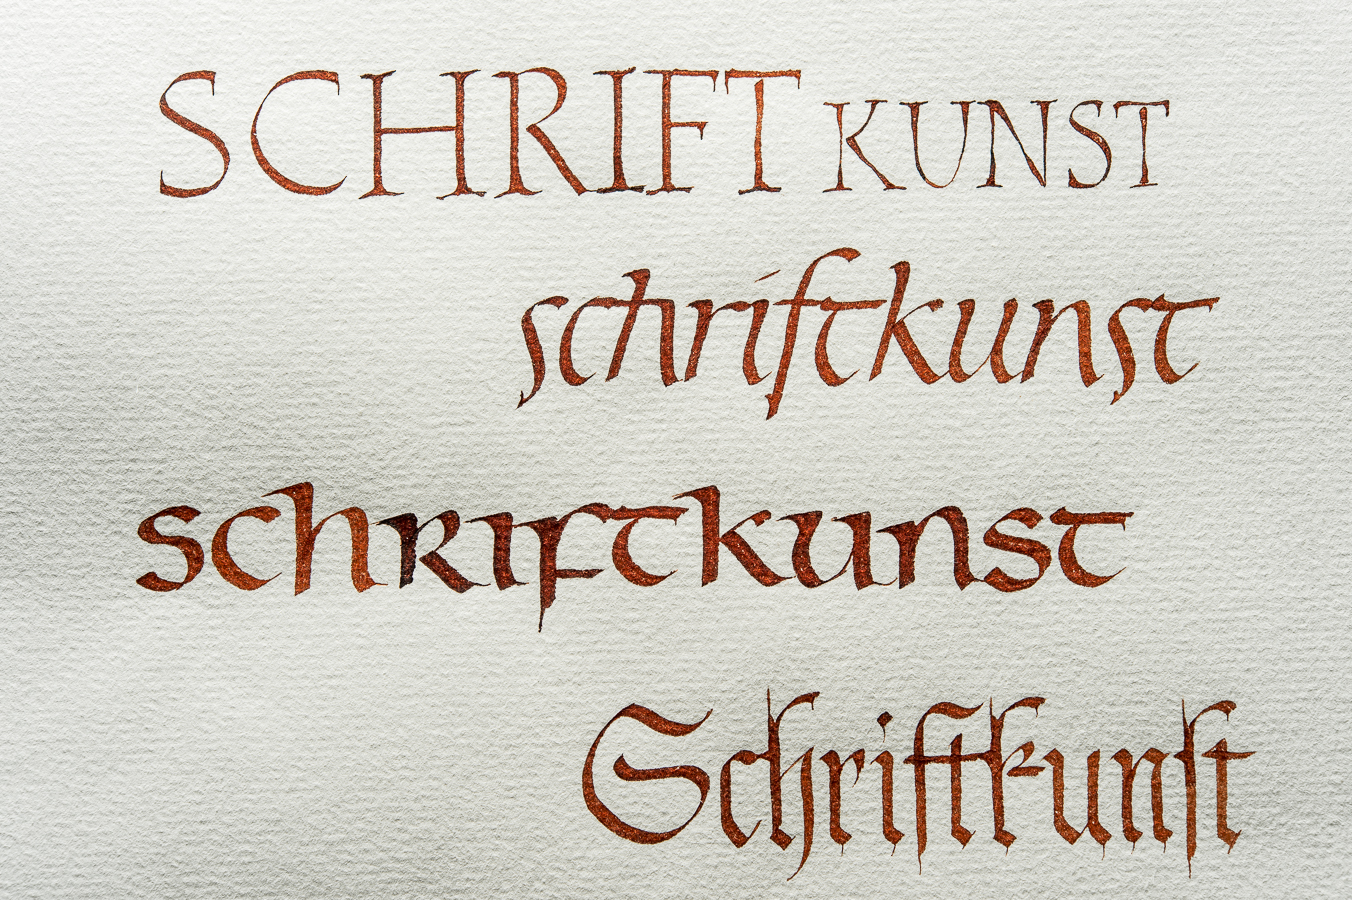 SCHRIFT KUNST
schriftkunst
schriftkunst
Schriftkunst